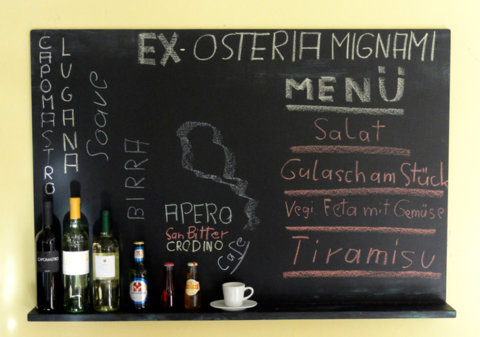 EX-OSTERIA MIGNAMI
MENÜ
Salat
Gulasch am Stück
Vegi Feta mit Gemüse
Tiramisu
CAPOMASTRO
LUGANA
Soave
BIRRA
APERO
San Bitter
CRODINO
Cafe
CAPOMASTRO